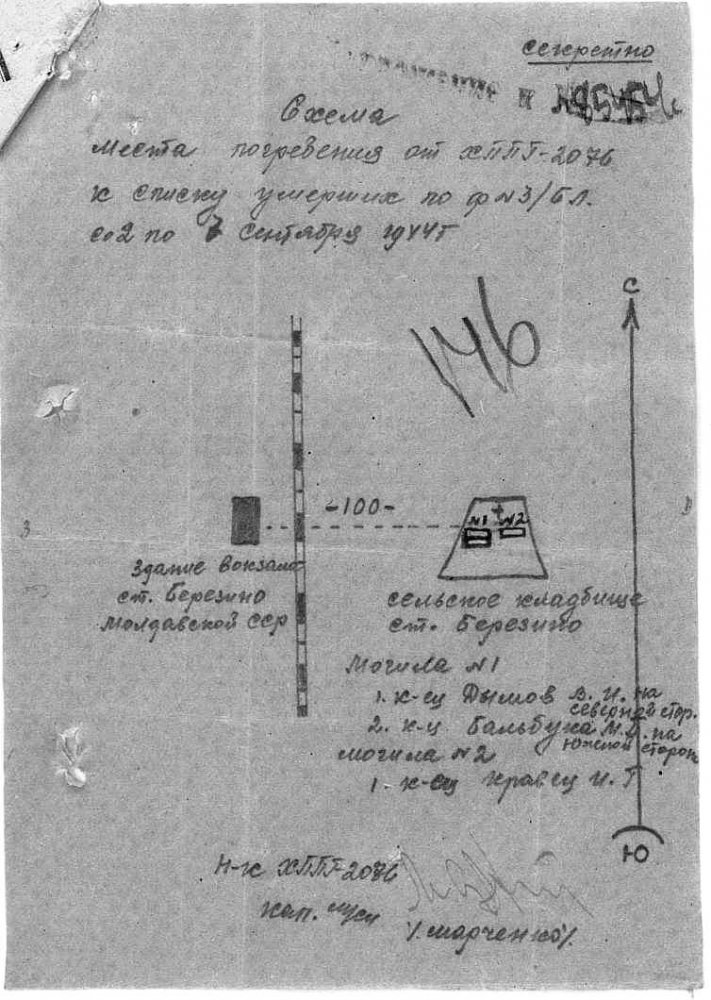 секретно
Схема
места погребения от ХППГ-2076
к списку умерших по ф N3/БЛ.
со 2 по 7 сентября 1944г
146
С
-100-
N1 N2
З
В
здание вокзала
ст. Березино
Молдавской ССР
сельское кладбище
ст. Березино
Могила N1
1. к-ец Дымов В. И. на
северной стор.
2. к-ц Бальбука М. на
южной сторон
могила N2
1. к-ец Кравец И. Г
Ю
Н-к ХППГ-2076
кап. м/сл
/Марченко/